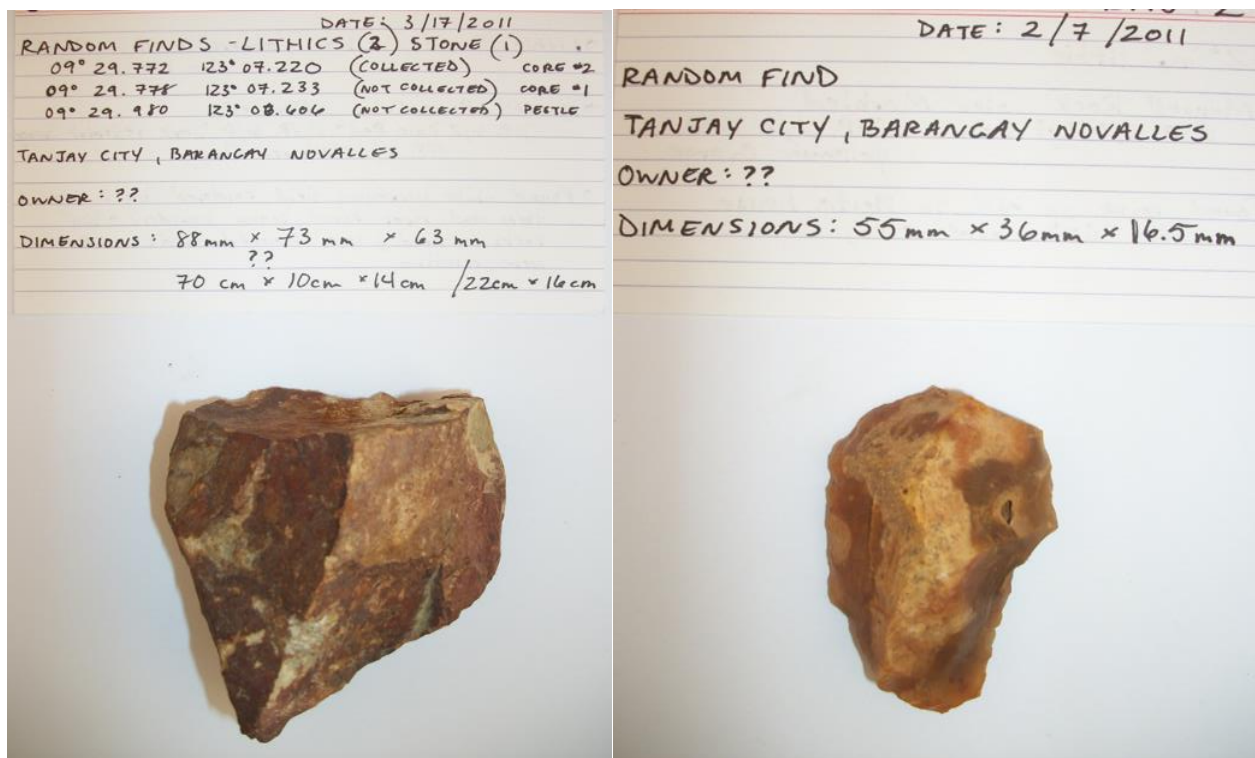 DATE: 3/17/2011
RANDOM FINDS - LITHICS (2) STONE (1)
09° 29.772 123° 07.220 (COLLECTED) CORE #2
09° 29.778 123° 07.233 (NOT COLLECTED) CORE #1
09° 29.980 123° 08.606 (NOT COLLECTED) PESTLE
TANJAY CITY, BARANGAY NOVALLES
OWNER: ??
DIMENSIONS: 88mm × 73 mm × 63 mm
??
70 cm × 10cm × 14cm /22cm × 16cm
DATE: 2/7/2011
RANDOM FIND
TANJAY CITY, BARANGAY NOVALLES
OWNER: ??
DIMENSIONS: 55mm × 36mm × 16.5mm